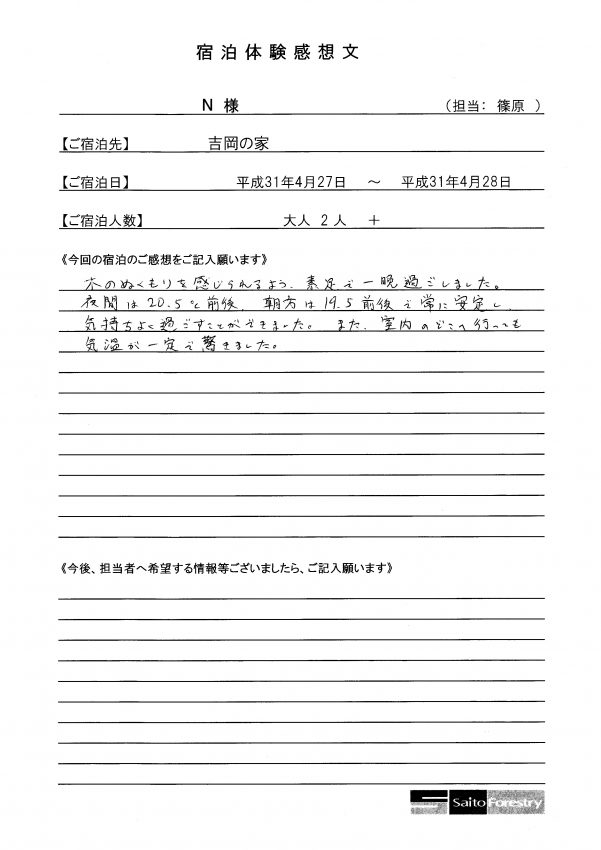 宿泊体験感想文
N 様 （担当： 篠原 ）
【ご宿泊先】 吉岡の家
【ご宿泊日】 平成31年4月27日 ～ 平成31年4月28日
【ご宿泊人数】 大人 2人 ＋
《今回の宿泊のご感想をご記入願います》
木のぬくもりを感じられるよう、素足で一晩過ごしました。
夜間は20.5℃前後、朝方は19.5前後で常に安定し、
気持ちよく過ごすことができました。また、室内のどこへ行っても
気温が一定で驚きました。
《今後、担当者へ希望する情報等ございましたら、ご記入願います》
Saito Forestry